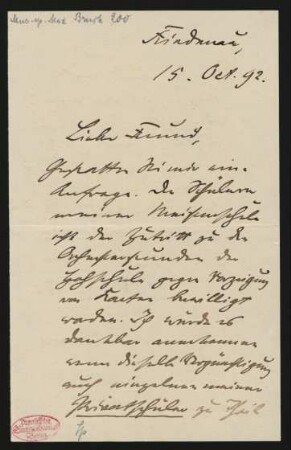 Mus. ep. Max Bruch 200
Friedenau,
15. Oct. 92.
Lieber Freund,
Gestatten Sie mir eine
Anfrage. Den Schülern
meiner Meisterschule
ist der Zutritt zu den
Orchesterstunden der
Hochschule gegen Vorzeigung
von Karten bewilligt
worden. Ich würde es
dankbar anerkennen
wenn dieselbe Vergünstigung
auch einzelnen meiner
Privatschüler zu Theil